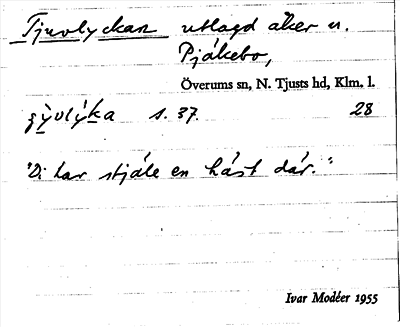 Tjuvlyckan utlagd åker n.
Pjåkebo,
Överums sn, N. Tjusts hd, Klm. l.
s. 37. 28
"Di har stjäle en häst där."
Ivar Modéer 1955